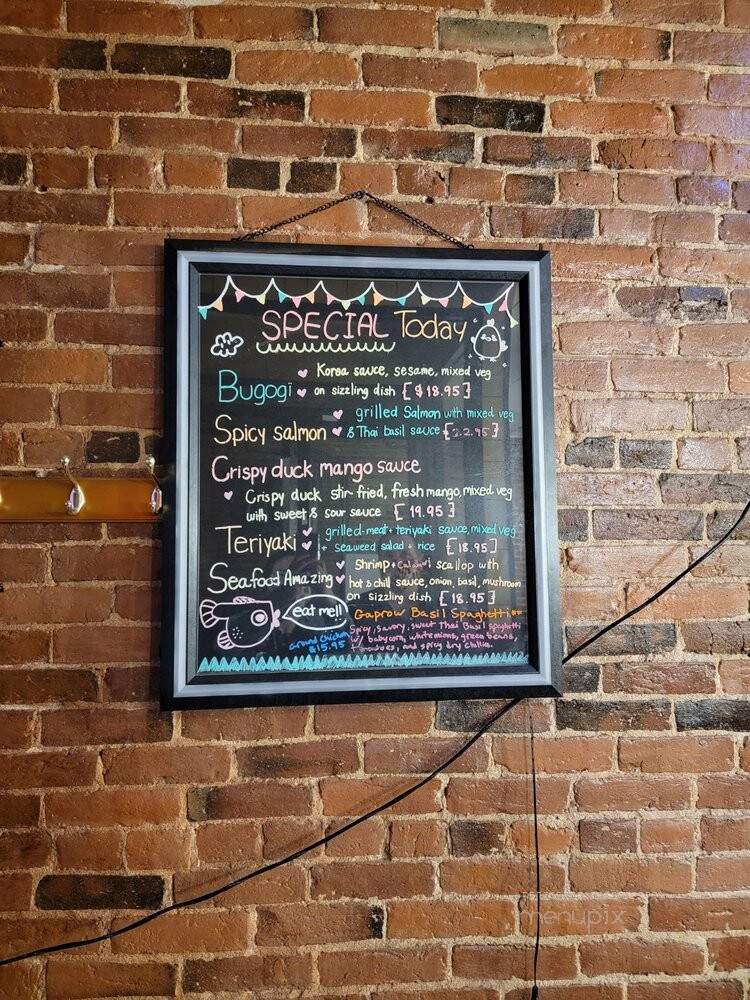 SPECIAL Today
Bugogi
Korea sauce, sesame, mixed veg
on sizzling dish [$18.95]
Spicy salmon
grilled Salmon with mixed veg
& Thai basil sauce [22.95]
Crispy duck mango sauce
Crispy duck stir-fried, fresh mango, mixed veg
with sweet & sour sauce [19.95]
Teriyaki
grilled-meat + teriyaki sauce, mixed veg
+ seaweed salad + rice [18.95]
Seafood Amazing
Shrimp + Calamari scallop with
hot & chili sauce, onion, basil, mushroom
on sizzling dish [18.95]
eat me!!
Gaprow Basil Spaghetti
Spicy, savory, sweet Thai Basil spaghetti
w/ babycorn, white onions, green beans,
tomatoes, and spicy dry chilies.
Ground Chicken
$15.95
menupix